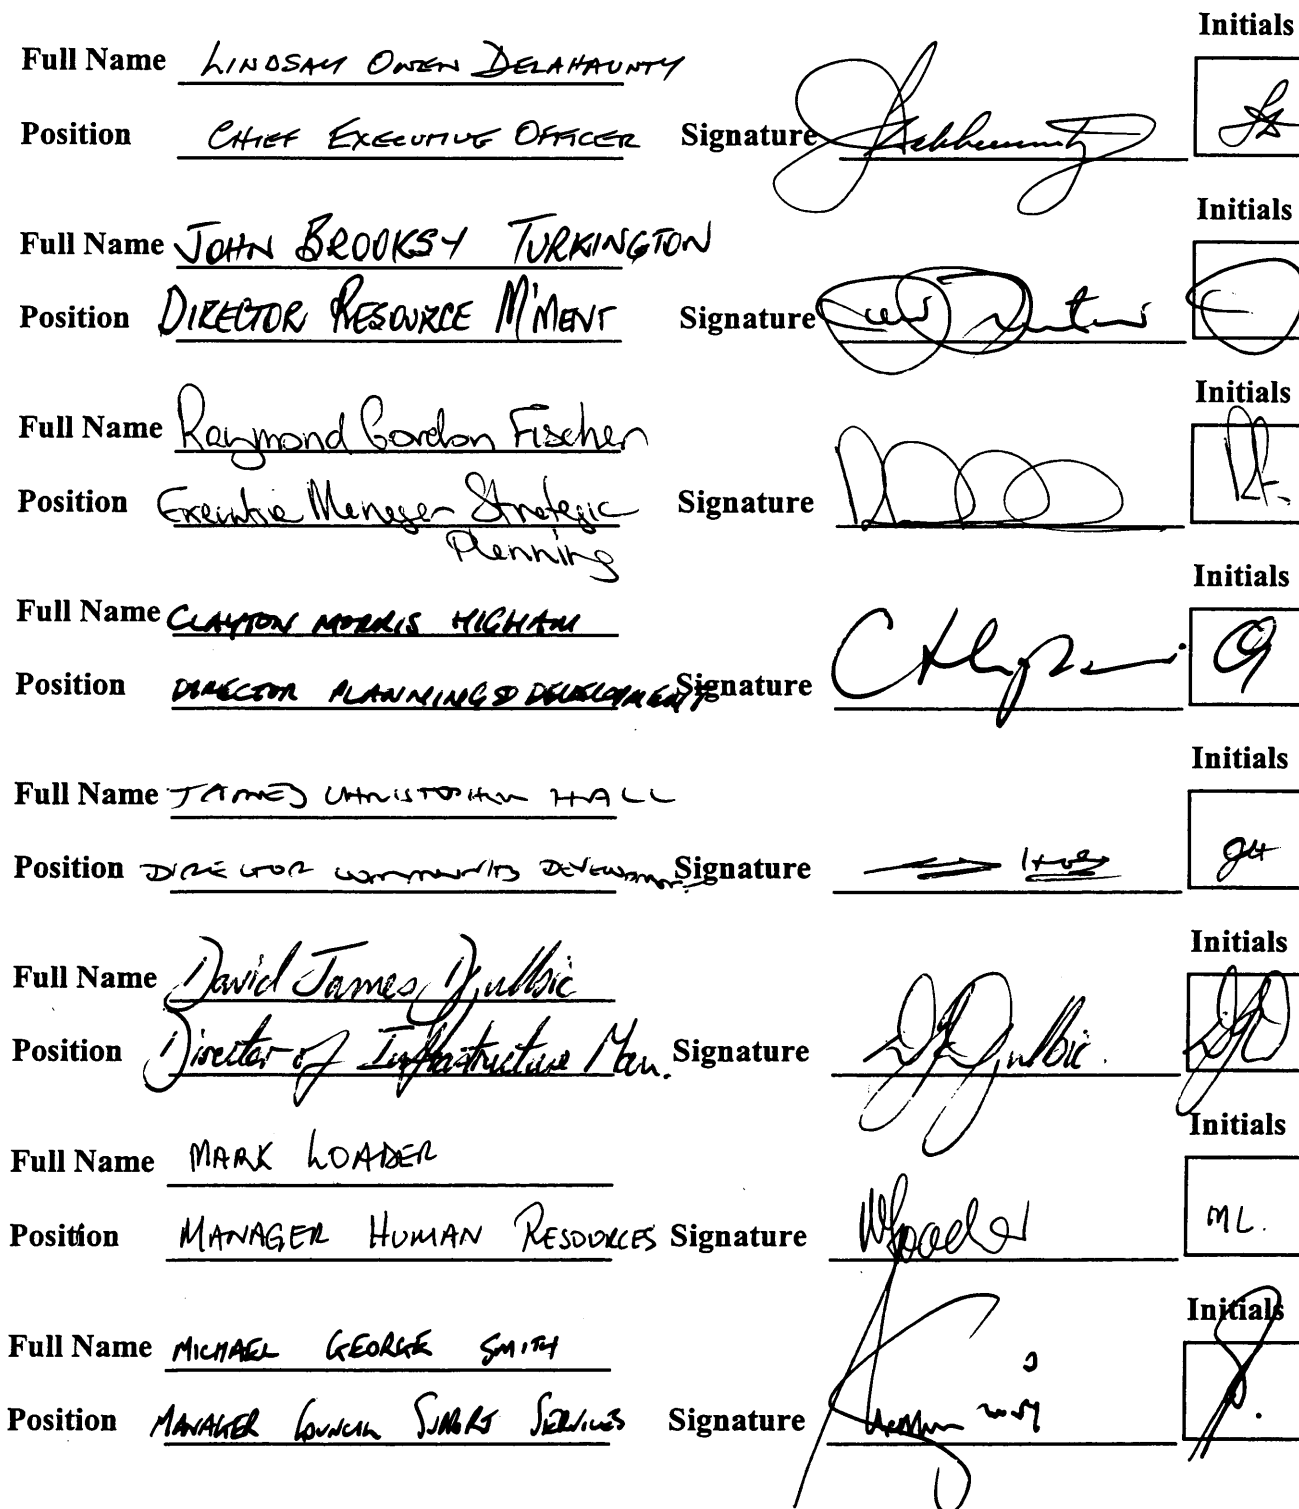 Initials
Full Name LINDSAY OWEN DELAHAUNTY
Position CHIEF EXECUTIVE OFFICER Signature
Initials
Full Name JOHN BROOKSY TURKINGTON
Position DIRECTOR RESOURCE M'MENT Signature
Initials
Full Name Raymond Gordon Fischer
Position Executive Manager Strategic Signature
Planning
Initials
Full Name CLAYTON MORRIS HIGHAM
Position DIRECTOR PLANNING & DEVELOPMENT Signature
Initials
Full Name JAMES CHRISTOPHER HALL
Position DIRECTOR COMMUNITY DEVELOPMENT Signature
Initials
Full Name David James Djulbic
Position Director of Infrastructure Man. Signature
Initials
Full Name MARK LOADER
Position MANAGER HUMAN RESOURCES Signature ML.
Initials
Full Name MICHAEL GEORGE SMITH
Position MANAGER COUNCIL SUPPORT SERVICES Signature